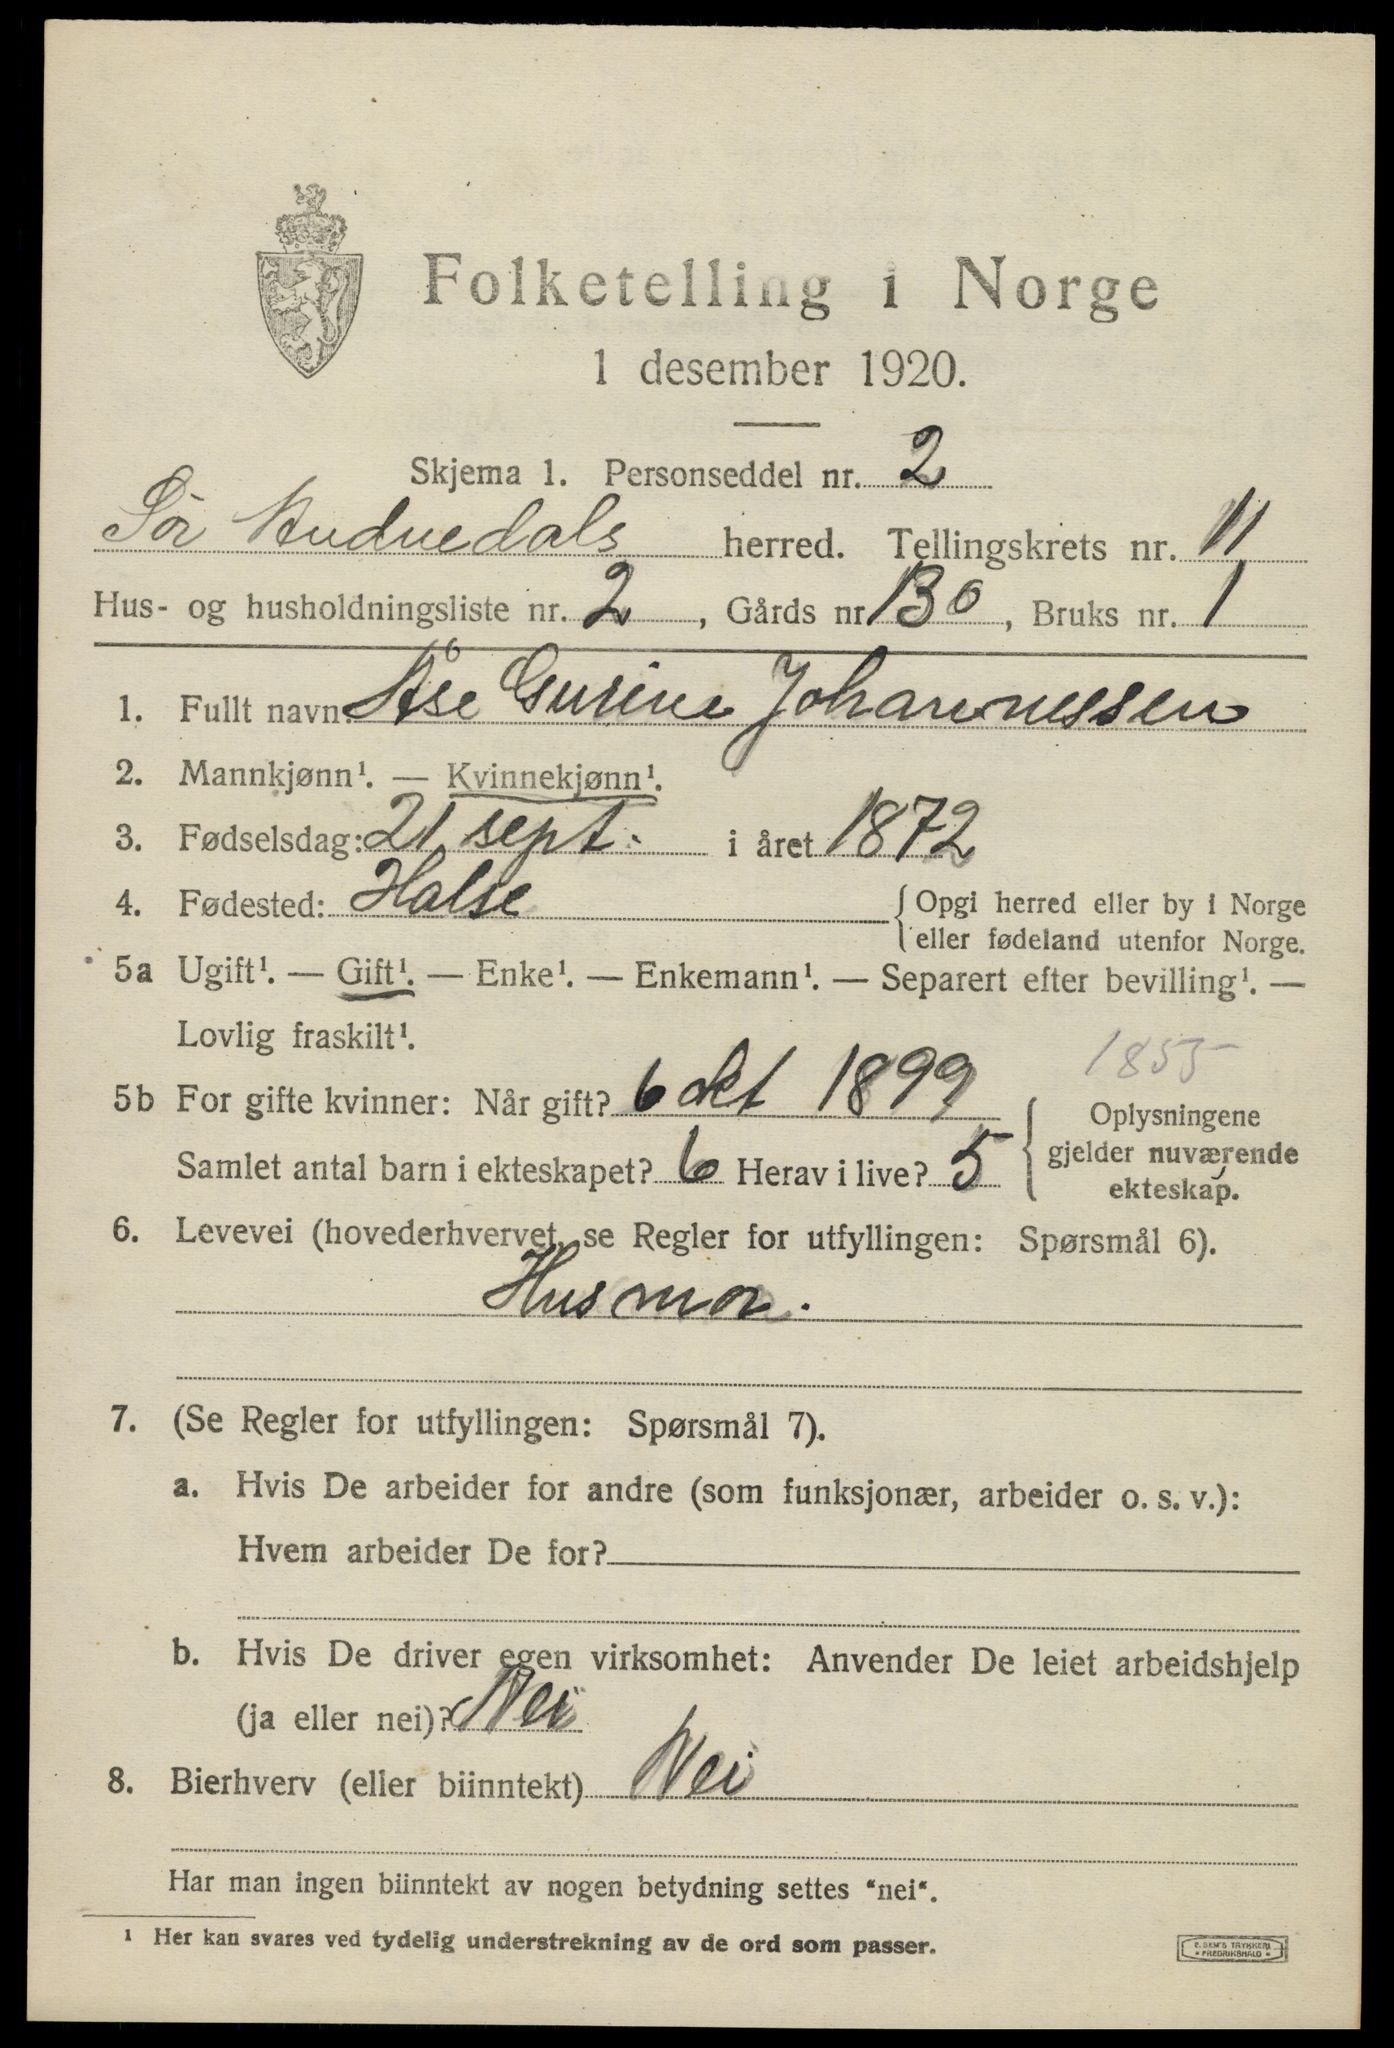 Folketelling i Norge
1 desember 1920.
Skjema 1. Personseddel nr. 2
Sör Audnedals herred. Tellingskrets nr. 11
Hus- og husholdningsliste nr. 2, Gårds nr 130, Bruks nr. 1
1. Fullt navn: Åse Gurine Johannessen
2. Mannkjønn¹. — Kvinnekjønn¹.
3. Fødselsdag: 21 sept. i året 1872
4. Fødested: Halse { Opgi herred eller by i Norge
eller fødeland utenfor Norge.
5a Ugift¹. — Gift¹. — Enke¹. — Enkemann¹. — Separert efter bevilling¹. —
Lovlig fraskilt¹.
1855
5b For gifte kvinner: Når gift? 6 okt 1899
Samlet antal barn i ekteskapet? 6 Herav i live? 5
{ Oplysningene
gjelder nuværende
ekteskap.
6. Levevei (hovederhvervet, se Regler for utfyllingen: Spørsmål 6).
Husmor.
7. (Se Regler for utfyllingen: Spørsmål 7).
a. Hvis De arbeider for andre (som funksjonær, arbeider o. s. v.):
Hvem arbeider De for?
b. Hvis De driver egen virksomhet: Anvender De leiet arbeidshjelp
(ja eller nei)? Nei
8. Bierhverv (eller biinntekt) Nei
Har man ingen biinntekt av nogen betydning settes "nei".
¹ Her kan svares ved tydelig understrekning av de ord som passer.
E. SEM'S TRYKKERI
• FREDRIKSHALD •